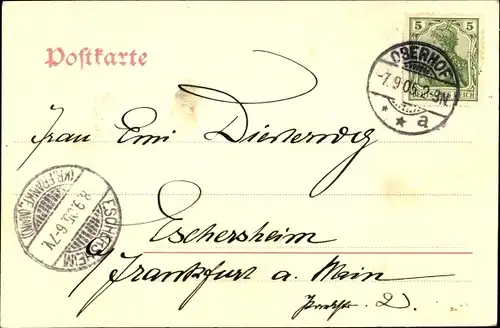 5 5
OBERHOF
-7.9.05.2-3N.
* * a
Postkarte
Frau Emi Diesterweg
ESCHERSHEIM
8.9.05.6-7N.
(KR. FRANKF. (MAIN)
Eschersheim
Frankfurt a. Main
2